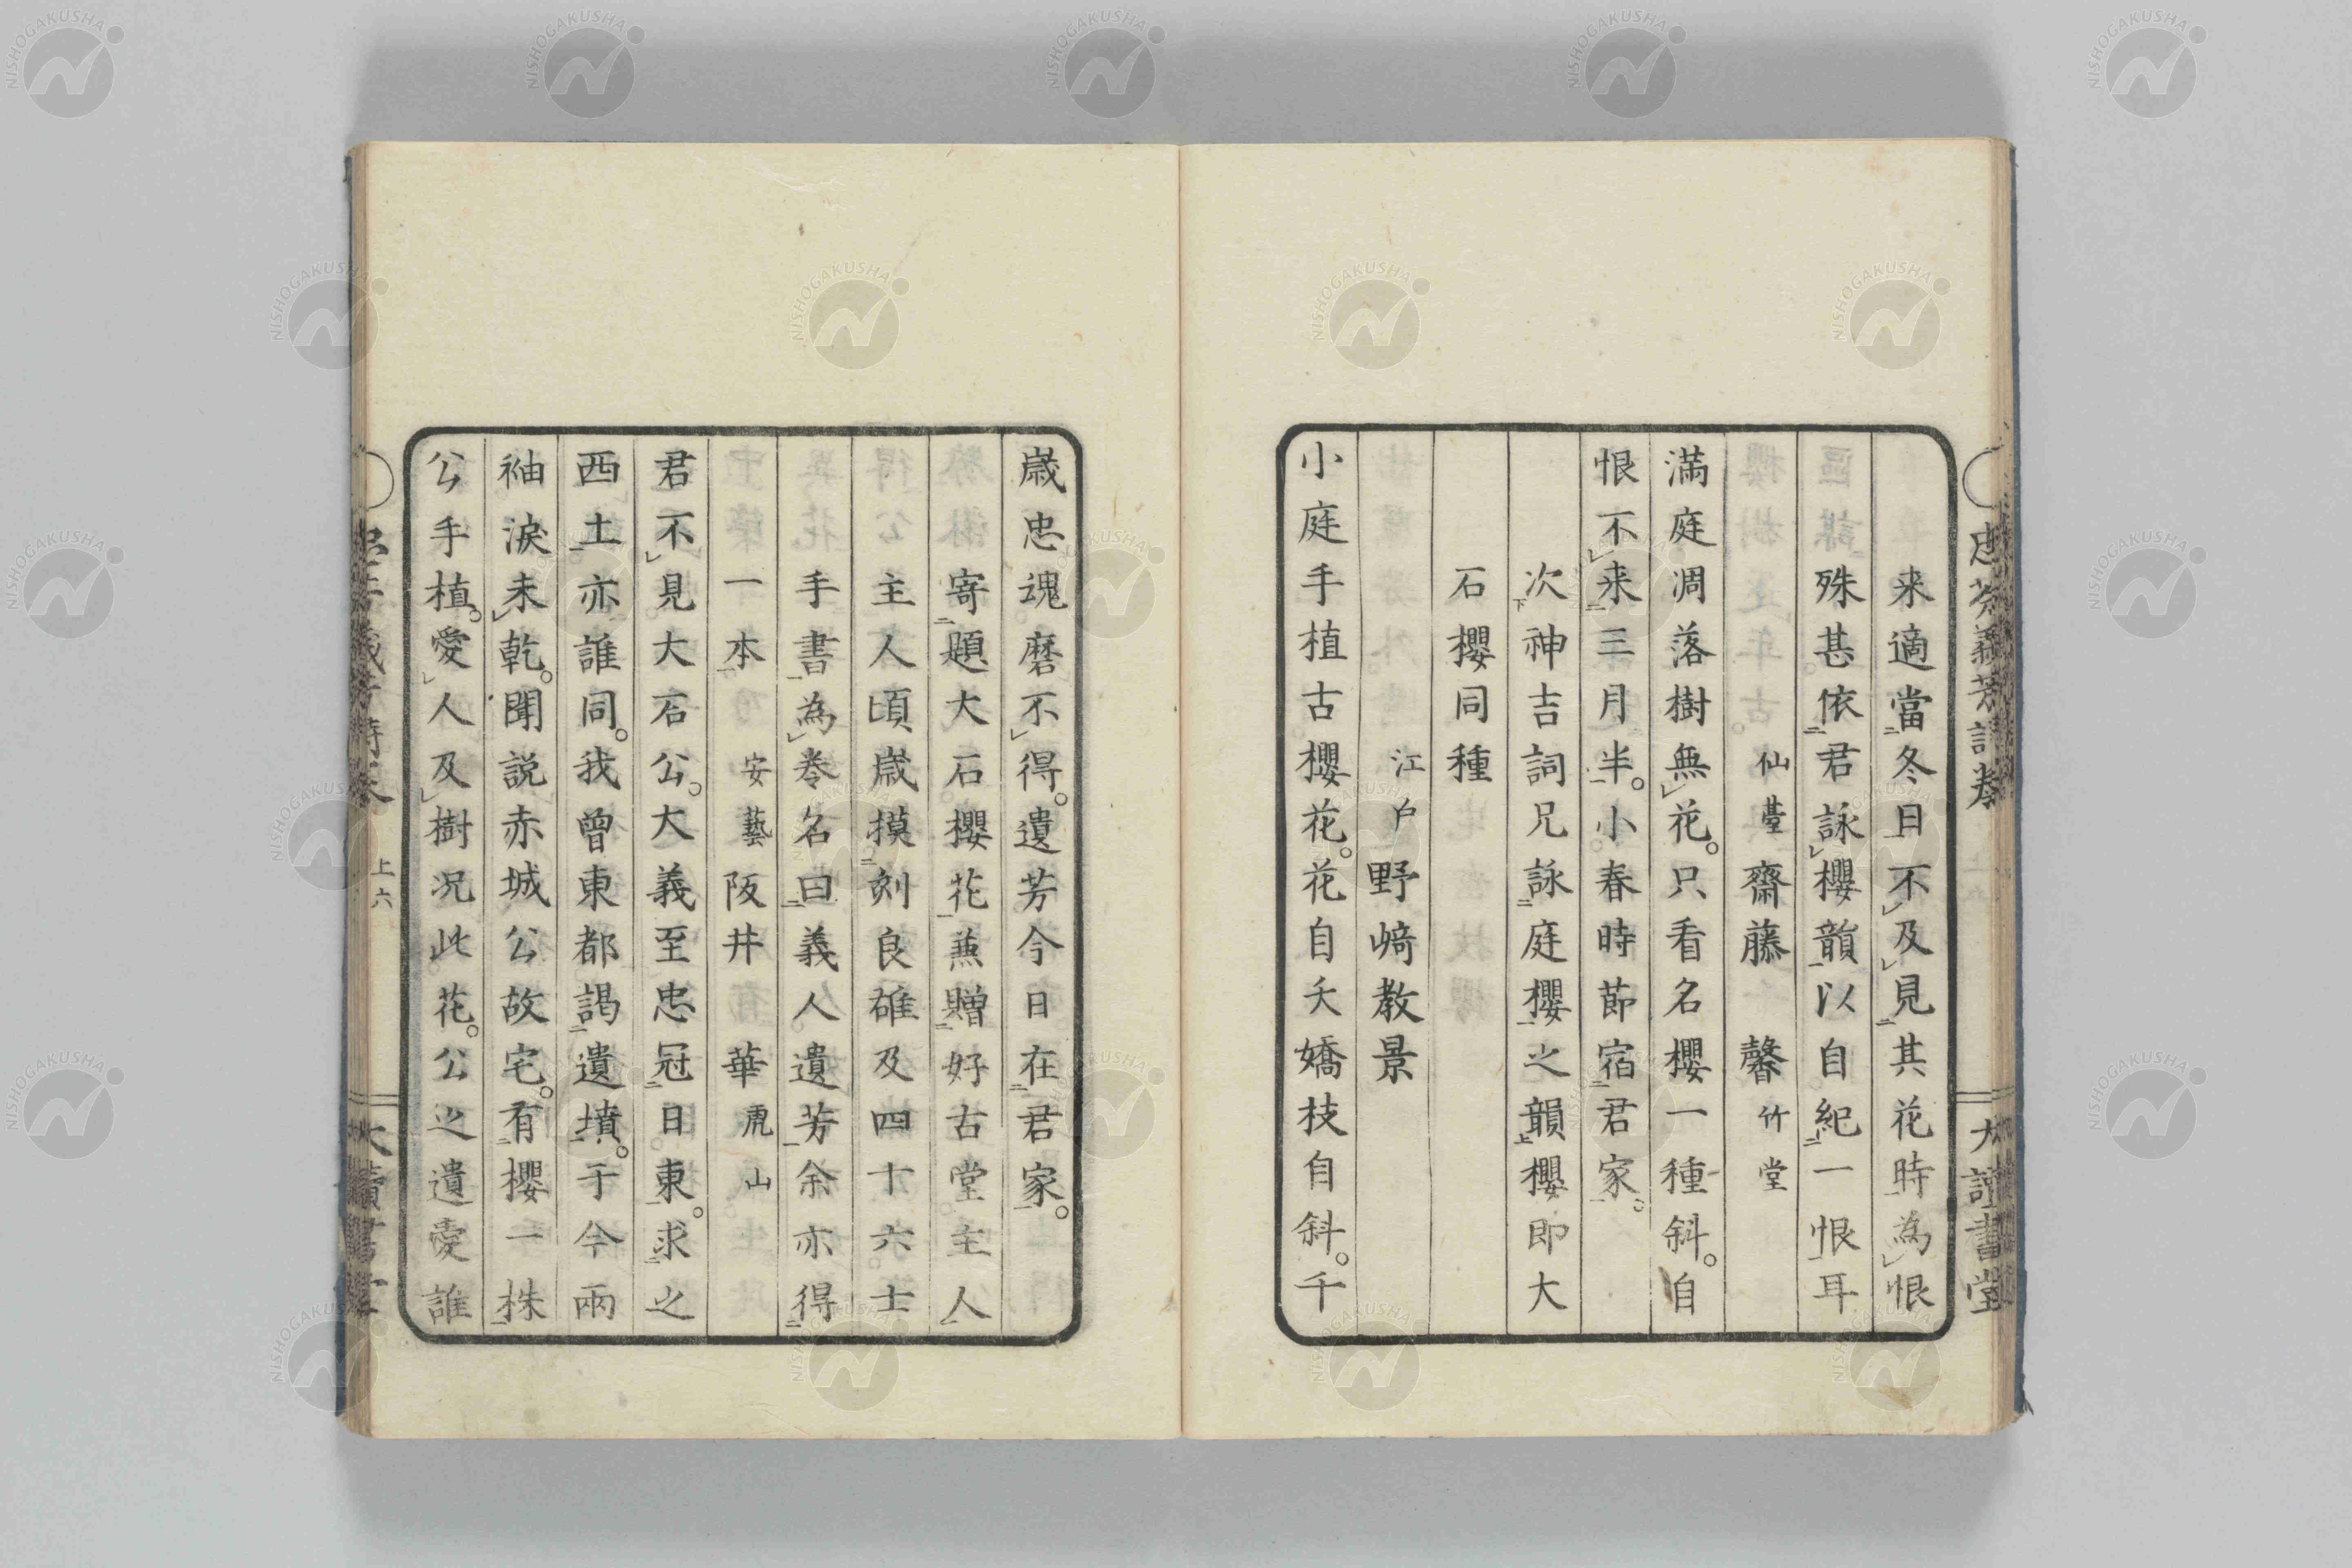 来適當冬日不及見其花時為恨
殊甚依君詠櫻韻以自紀一恨耳
仙臺 齋藤 馨 竹堂
満庭凋落樹無花。只看名櫻一種斜。自
恨不来三月半。小春時節宿君家。
次神吉詞兄詠庭櫻之韻櫻即大
石櫻同種
江戸 野﨑教景
小庭手植古櫻花。花自夭嬌枝自斜。千
歳忠魂磨不得。遺芳今日在君家。
寄題大石櫻花兼贈好古堂主人
主人頃歳摸刻良雄及四十六士
手書為巻名曰義人遺芳余亦得
一本
安藝 阪井 華 虎山
君不見大石公。大義至忠冠日東。求之
西土亦誰同。我曾東都謁遺墳。于今兩
袖淚未乾。聞説赤城公故宅。有櫻一株
公手植。愛人及樹況此花。公之遺愛誰
上六
NISHOGAKUSHA